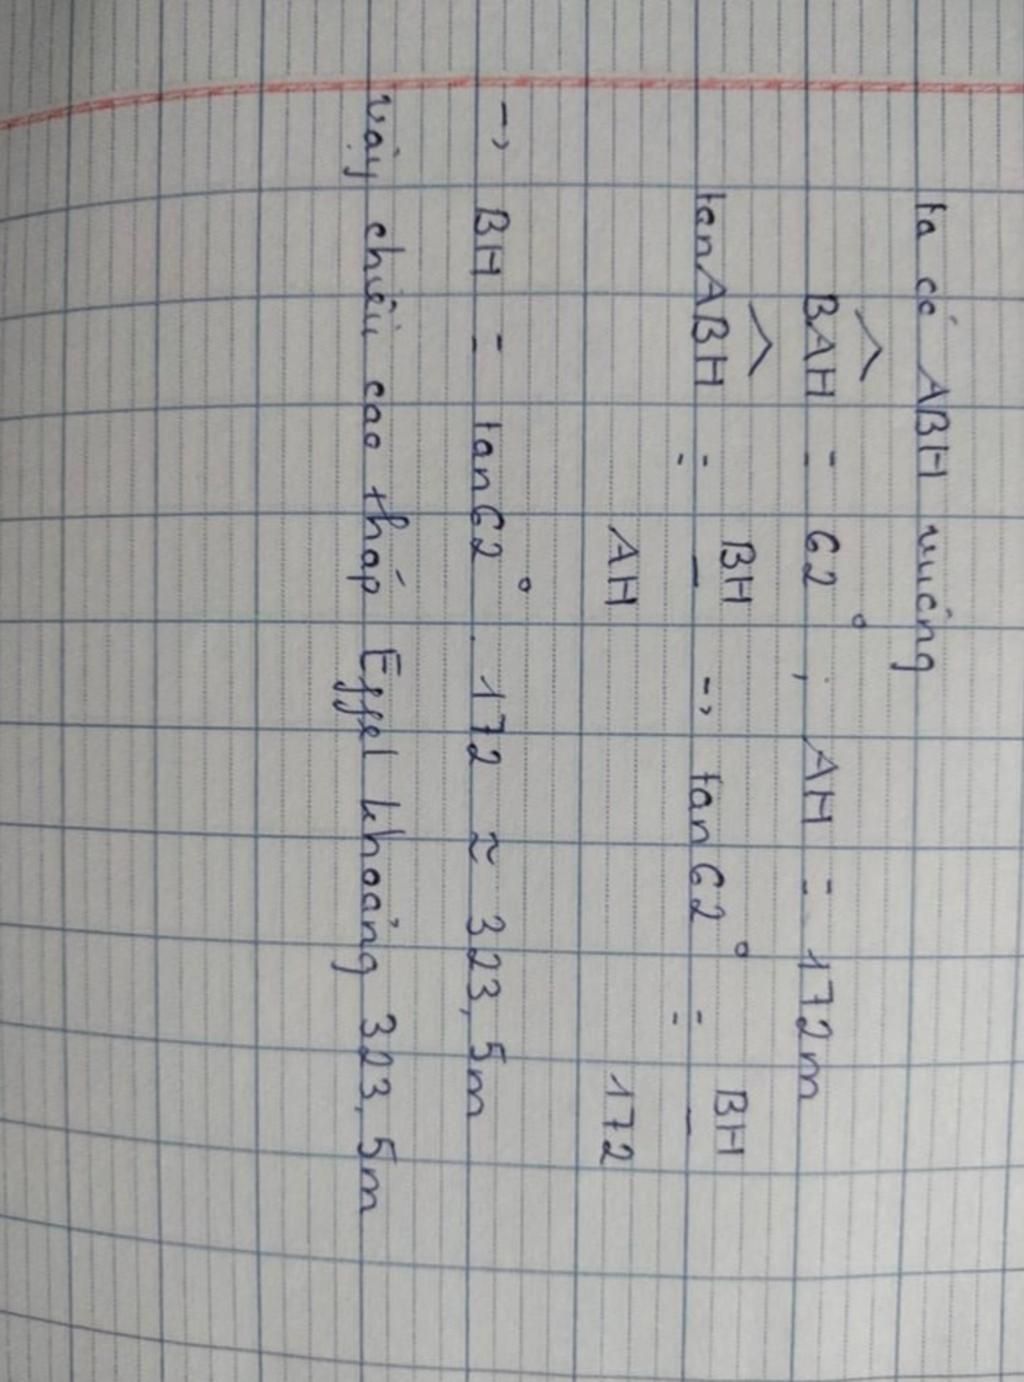 ta có ABH vuông
BAH = 62°, AH = 172m
tanABH = BH/AH → tan62° = BH/172
→ BH = tan62° . 172 ≈ 323,5m
Vậy chiều cao tháp Effel khoảng 323,5m